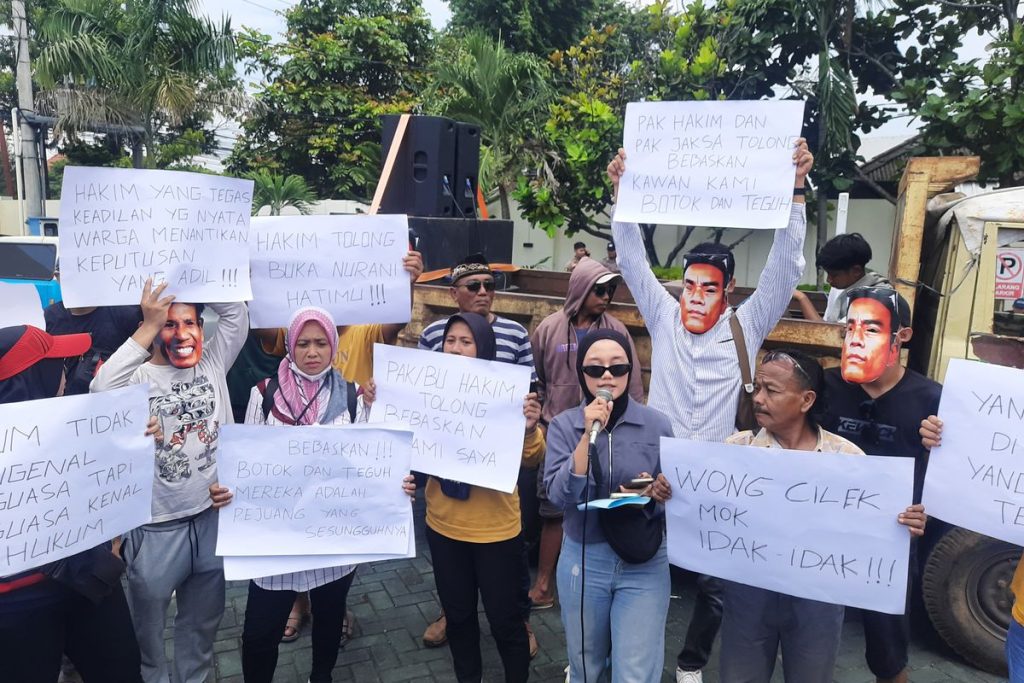 HAKIM YANG TEGAS
KEADILAN YG NYATA
WARGA MENANTIKAN
KEPUTUSAN
YANG ADIL !!!
HAKIM TOLONG
BUKA NURANI
HATIMU !!!
PAK HAKIM DAN
PAK JAKSA TOLONG
BEBASKAN
KAWAN KAMI
BOTOK DAN TEGUH
UM TIDAK
NGENAL
GUASA TAPI
GUASA KENAL
HUKUM
BEBASKAN !!!
BOTOK DAN TEGUH
MEREKA ADALAH
PEJUANG YANG
SESUNGGUHNYA
PAK/BU HAKIM
TOLONG
BEBASKAN
KAMI SAYA
WONG CILEK
MOK
IDAK-IDAK !!!
YAN
DI
YAND
TE
P
DILARANG
PARKIR